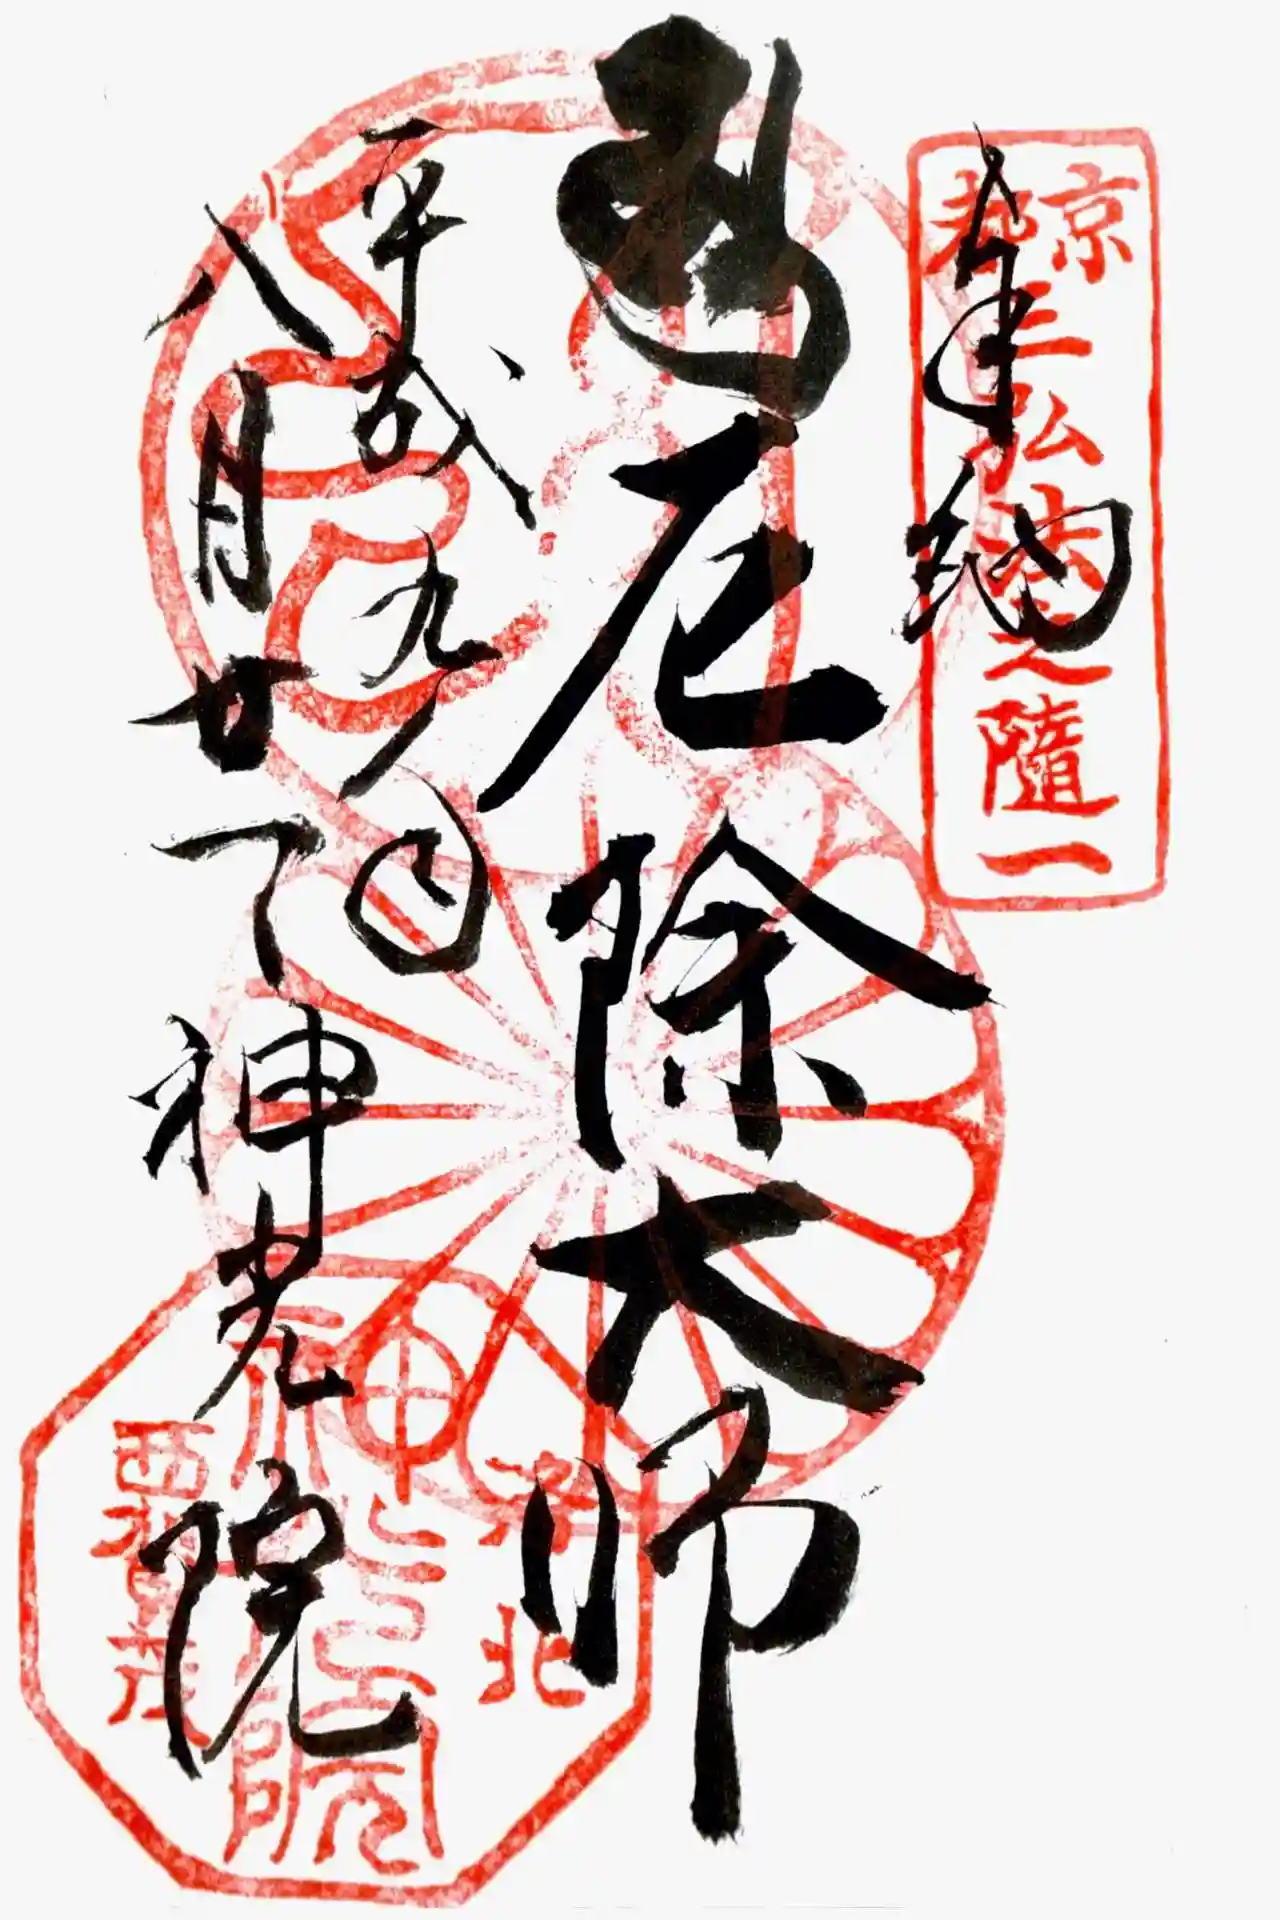 奉納
京都三弘法之隨一
厄除大師
平成九年
八月廿
神光院
洛北
神光院
西賀茂